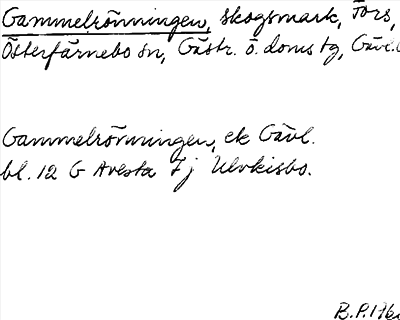 Gammelrönningen, skogsmark, Fors,
Österfärnebo sn, Gästr. ö. doms tg, Gävl.
Gammelrönningen, ek Gävl.
bl. 12 G Avesta 7j Ulvkisbo.
B.P.1760